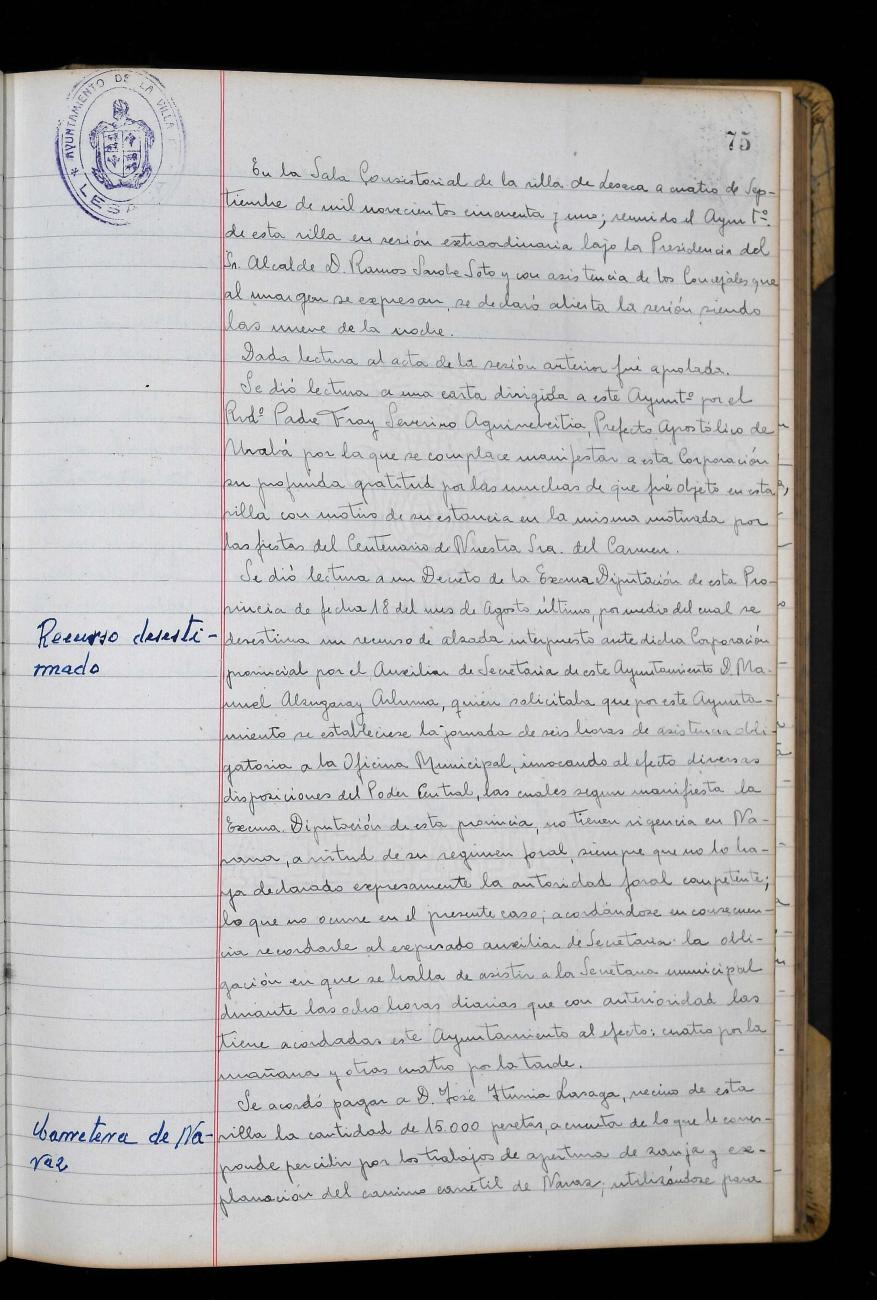 75
AYUNTAMIENTO DE LA VILLA
LESA
En la Sala Consistorial de la villa de Lesaca a cuatro de Sep-
tiembre de mil novecientos cincuenta y uno; reunido el Ayuntº.
de esta villa en sesión extraordinaria bajo la Presidencia del
Sr. Alcalde D. Ramos Soto y con asistencia de los Concejales que
al margen se expresan, se declaró abierta la sesión siendo
las nueve de la noche.
Dada lectura al acta de la sesión anterior fué aprobada.
Se dió lectura a una carta dirigida a este Ayuntº por el
Rvdº Padre Fray Severino Aguirrebeitia, Prefecto Apostólico de
Urabá por la que se complace manifestar a esta Corporación
su profunda gratitud por las muchas de que fué objeto en esta
villa con motivo de su estancia en la misma motivada por
las fiestas del Centenario de Nuestra Sra. del Carmen.
Se dió lectura a un Decreto de la Excma Diputación de esta Pro-
vincia de fecha 18 del mes de Agosto último, por medio del cual se
Recurso desesti-
mado
desestima un recurso de alzada interpuesto ante dicha Corporación
provincial por el Auxiliar de Secretaria de este Ayuntamiento D. Ma-
nuel Alzugaray, quién solicitaba que por este Ayunta-
miento se estableciese la jornada de seis horas de asistencia obli-
gatoria a la Oficina Municipal, invocando al efecto diversas
disposiciones del Poder Central, las cuales segun manifiesta la
Excma. Diputación de esta provincia, no tienen vigencia en Na-
varra, a virtud de su regimen foral, siempre que no lo ha-
ya declarado expresamente la autoridad foral competente;
lo que no ocurre en el presente caso; acordándose en consecuen-
cia recordarle al expresado auxiliar de Secretaria la obli-
gación en que se halla de asistir a la Secretaria municipal
durante las ocho horas diarias que con anterioridad las
tiene acordadas este Ayuntamiento al efecto: cuatro por la
mañana y otras cuatro por la tarde.
Se acordó pagar a D. José Iturria Lasaga, vecino de esta
Carretera de Na-
vaz
villa la cantidad de 15.000 pesetas, a cuenta de lo que le corres-
ponde percibir por los trabajos de apertura de zanja y ex-
planación del camino carretil de Navaz; utilizándose para